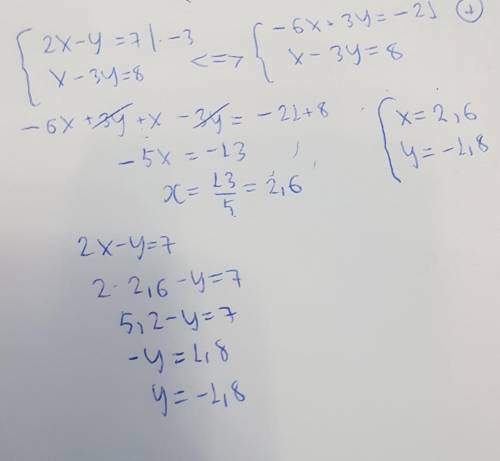 { 2x-y=7 |·-3
{ x-3y=8
<=> { -6x+3y=-21 (+)
{ x-3y=8
-6x+3y+x-3y=-21+8
-5x=-13
x=13/5=2,6
{ x=2,6
{ y=-1,8
2x-y=7
2·2,6-y=7
5,2-y=7
-y=1,8
y=-1,8